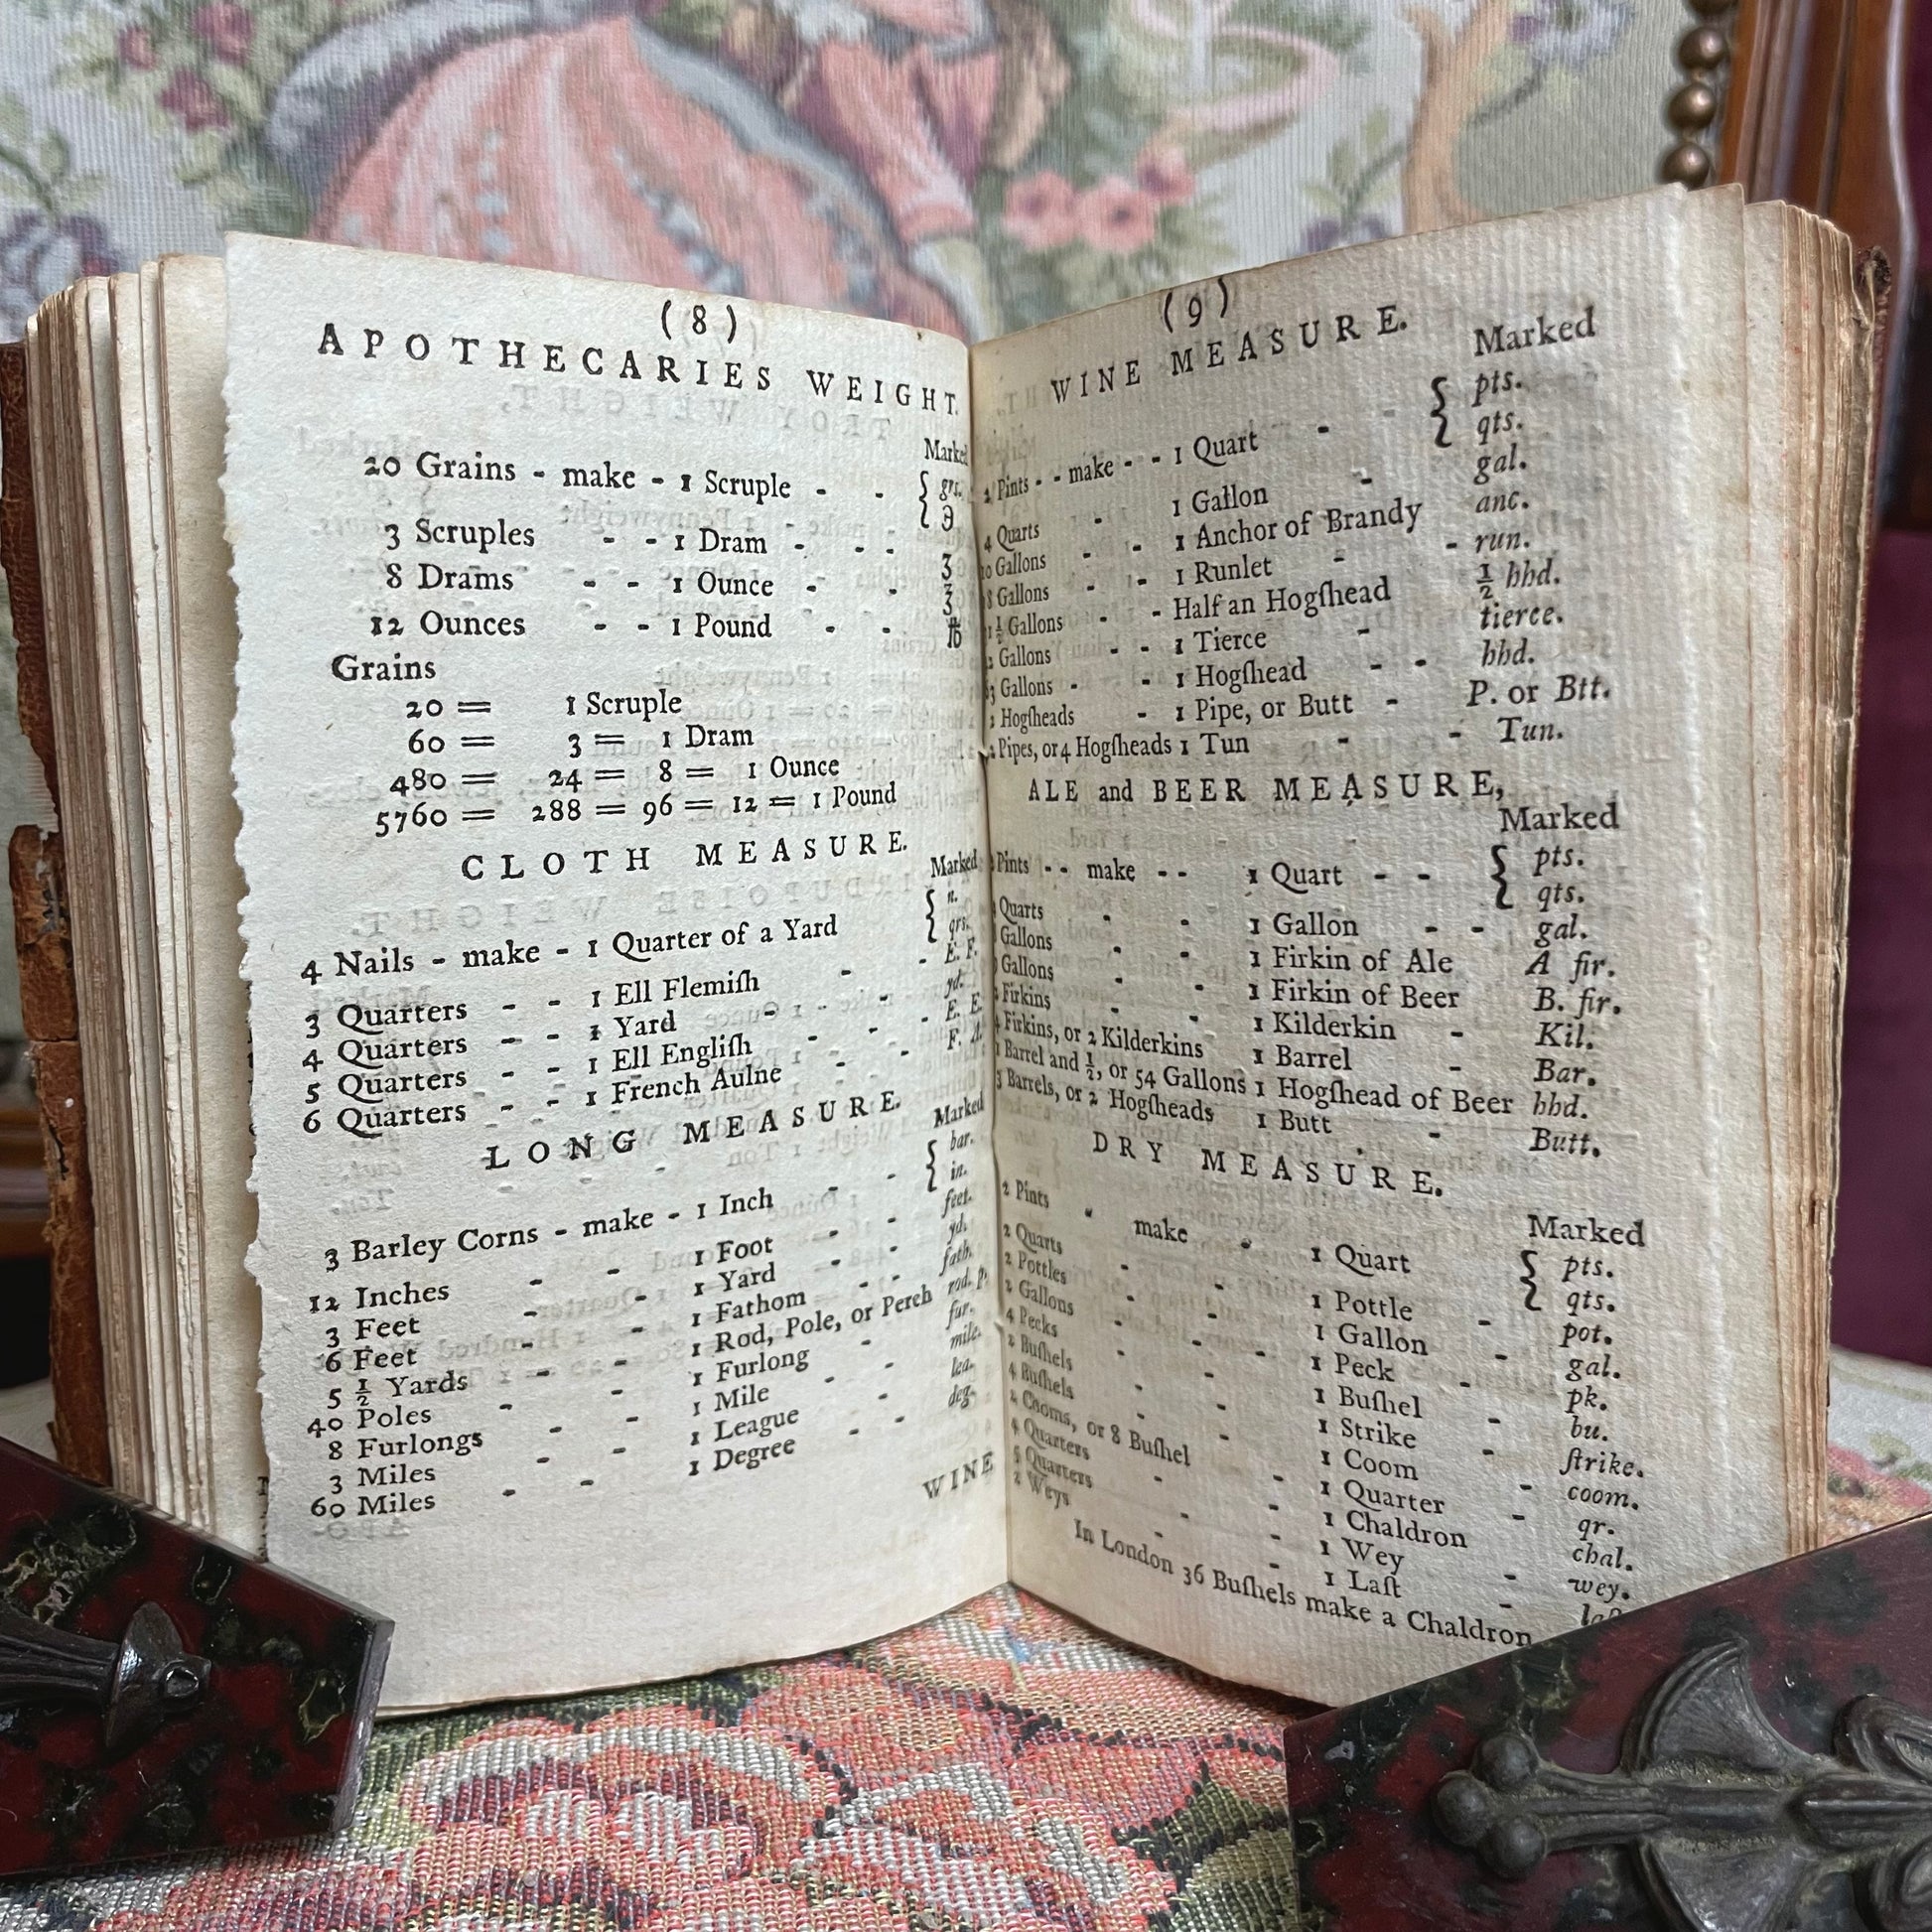 ( 8 )
APOTHECARIES WEIGHT.
Marked
20 Grains - make - 1 Scruple - - { grs.
℈
3 Scruples - - 1 Dram - - - ʒ
8 Drams - - 1 Ounce - - ℥
12 Ounces - - 1 Pound - - ℔
Grains
20 = 1 Scruple
60 = 3 = 1 Dram
480 = 24 = 8 = 1 Ounce
5760 = 288 = 96 = 12 = 1 Pound
CLOTH MEASURE.
Marked
4 Nails - make - 1 Quarter of a Yard { n.
qrs.
3 Quarters - - 1 Ell Flemiſh - - E. F.
4 Quarters - - 1 Yard - - yd.
5 Quarters - - 1 Ell Engliſh - - E. E.
6 Quarters - - 1 French Aulne - - F. A.
LONG MEASURE.
Marked
3 Barley Corns - make - 1 Inch - - { bar.
in.
12 Inches - - 1 Foot - - feet.
3 Feet - - 1 Yard - - yd.
6 Feet - - 1 Fathom - - fath.
5 ½ Yards - - 1 Rod, Pole, or Perch rod. p.
40 Poles - - 1 Furlong - fur.
8 Furlongs - - 1 Mile - - mile.
3 Miles - - 1 League - - lea.
60 Miles - - 1 Degree - - deg.
WINE
( 9 )
WINE MEASURE.
Marked
2 Pints - - make - - 1 Quart - - { pts.
qts.
4 Quarts - - 1 Gallon - gal.
10 Gallons - - 1 Anchor of Brandy anc.
Gallons - - 1 Runlet - - run.
½ Gallons - - Half an Hogſhead ½ hhd.
Gallons - - 1 Tierce - tierce.
Gallons - - 1 Hogſhead - - hhd.
Hogſheads - 1 Pipe, or Butt - P. or Btt.
Pipes, or 4 Hogſheads 1 Tun - - Tun.
ALE and BEER MEASURE,
Marked
Pints - - make - - 1 Quart - - { pts.
qts.
Quarts - - 1 Gallon - - gal.
Gallons - - 1 Firkin of Ale A fir.
Gallons - - 1 Firkin of Beer B. fir.
Firkins - - 1 Kilderkin - Kil.
4 Firkins, or 2 Kilderkins 1 Barrel - Bar.
1 Barrel and ½, or 54 Gallons 1 Hogſhead of Beer hhd.
3 Barrels, or 2 Hogſheads 1 Butt - Butt.
DRY MEASURE.
Marked
2 Pints - make - 1 Quart { pts.
qts.
2 Quarts - - 1 Pottle - pot.
2 Pottles - - 1 Gallon - gal.
2 Gallons - - 1 Peck - pk.
4 Pecks - - 1 Buſhel - bu.
2 Buſhels - - 1 Strike - ſtrike.
4 Buſhels - - 1 Coom - coom.
2 Cooms, or 8 Buſhel - 1 Quarter - qr.
4 Quarters - - 1 Chaldron chal.
5 Quarters - - 1 Wey - wey.
2 Weys - - 1 Laſt -
In London 36 Buſhels make a Chaldron